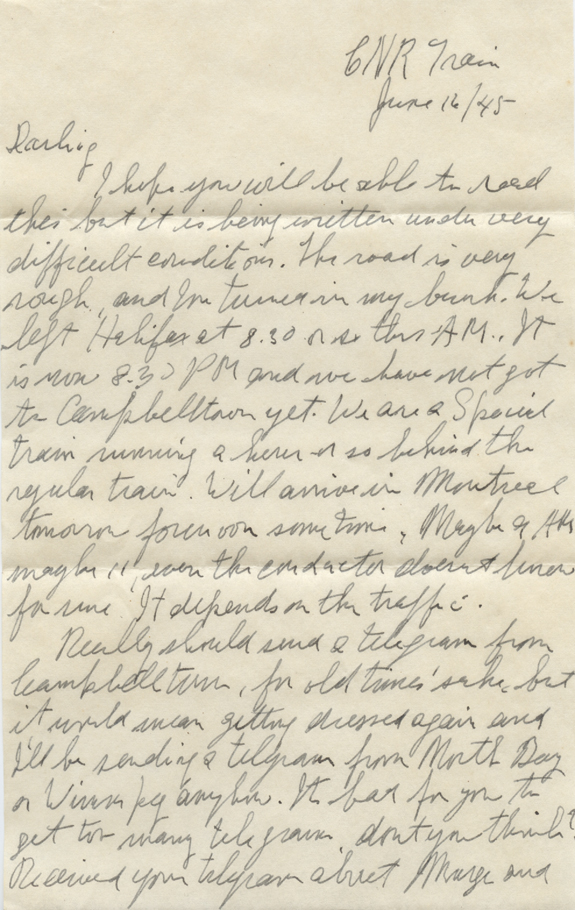 CNR Train
June 16/45
Darling
I hope you will be able to read
this but it is being written under very
difficult conditions. The road is very
rough, and I'm turned in my bunk. We
left Halifax at 8.30 or so this A.M.. It
is now 8.30 PM and we have not got
to Campbelltown yet. We are a Special
train running a hour or so behind the
regular train. Will arrive in Montreal
tomorrow forenoon sometime, Maybe 9 AM
maybe 11, even the conductor doesn't know
for sure It depends on the traffic.
Really should send a telegram from
Campbelltown, for old times' sake, but
it would mean getting dressed again and
I'll be sending a telgram from North Bay
or Winnipeg anyhow. It bad for you to
get too many telegrams, don't you think?
Received your telgram about Marge and